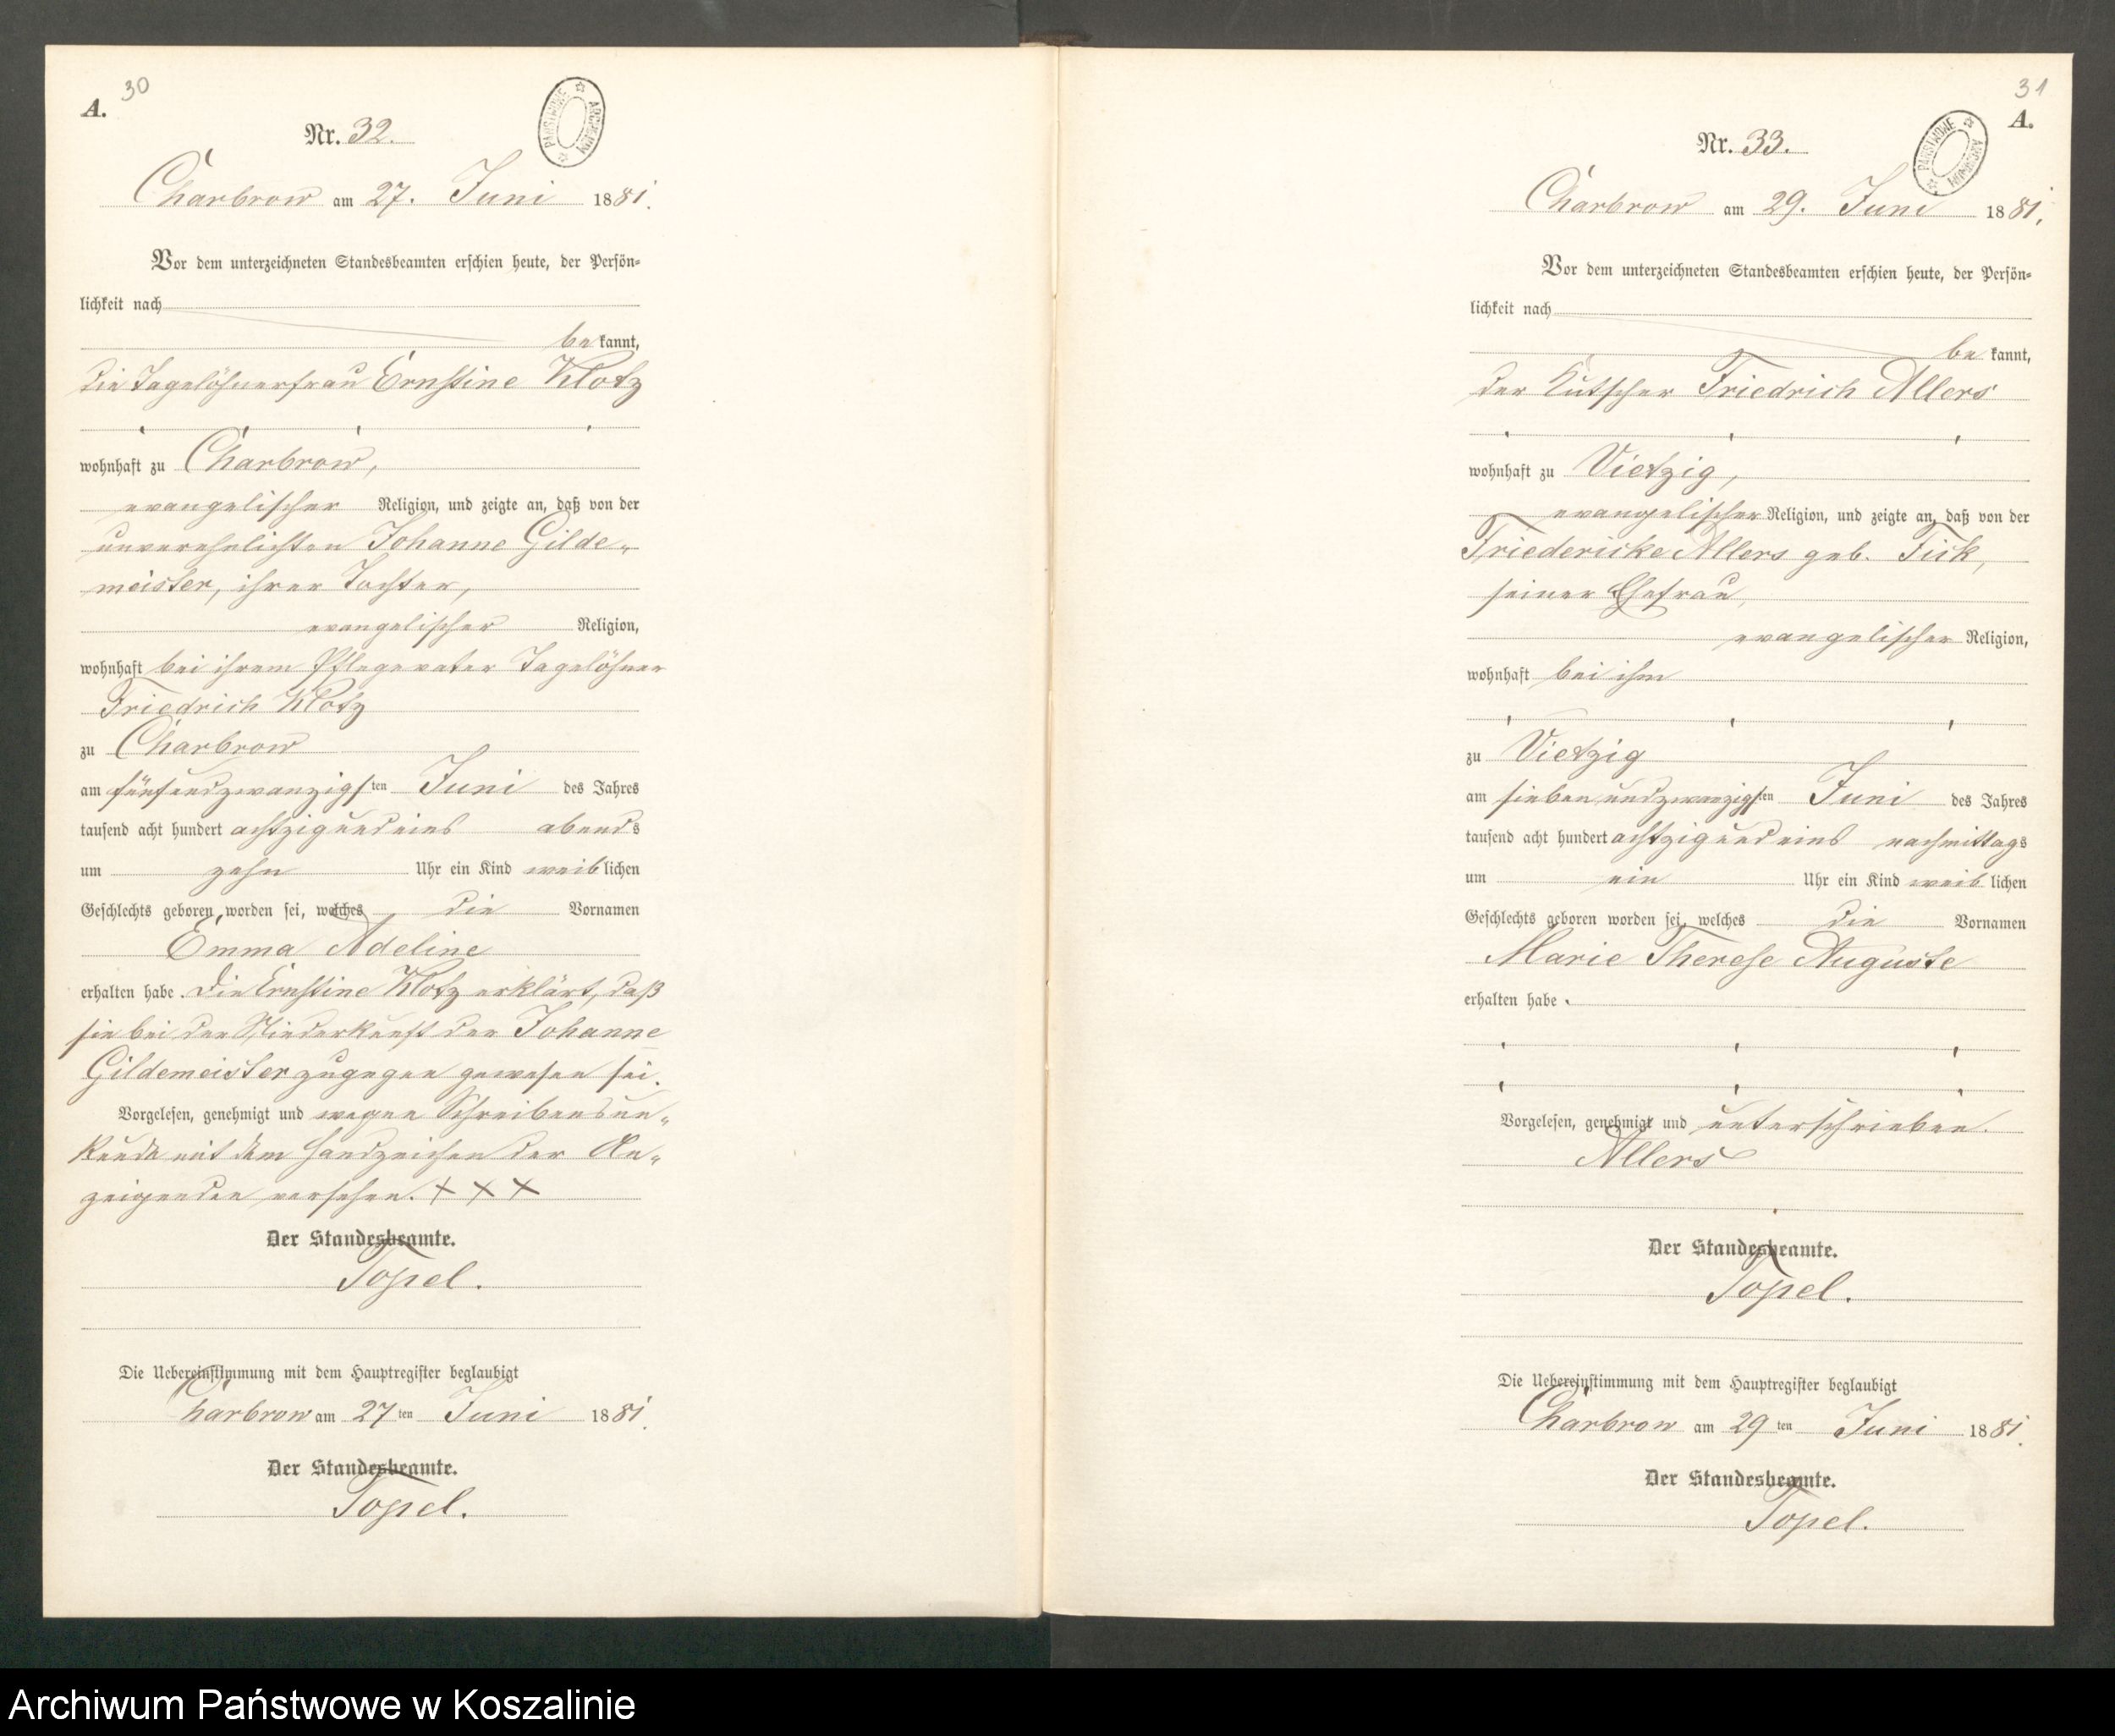 30
A.
PAŃSTWOWE ARCHIWUM
Nr. 32.
Charbrow am 27. Juni 1881.
Vor dem unterzeichneten Standesbeamten erschien heute, der Persön=
lichkeit nach
bekannt,
die Tagelöhnerfrau Ernstine Klotz
wohnhaft zu Charbrow,
evangelischer Religion, und zeigte an, daß von der
unverehelichten Johanne Gilde-
meister, ihrer Tochter,
evangelischer Religion,
wohnhaft bei ihrem Pflegevater Tagelöhner
Friedrich Klotz
zu Charbrow
am fünfundzwanzigsten Juni des Jahres
tausend acht hundert achtzig und eins abends
um zehn Uhr ein Kind weiblichen
Geschlechts geboren worden sei, welches die Vornamen
Emma Adeline
erhalten habe. Die Ernstine Klotz erklärt, daß
sie bei der Niederkunft der Johanne
Gildemeister zugegen gewesen sei.
Vorgelesen, genehmigt und wegen Schreibensun-
kunde mit dem Handzeichen der An-
zeigenden versehen. + + +
Der Standesbeamte.
Topel.
Die Uebereinstimmung mit dem Hauptregister beglaubigt
Charbrow am 27ten Juni 1881.
Der Standesbeamte.
Topel.
31
A.
PAŃSTWOWE ARCHIWUM
Nr. 33.
Charbrow am 29. Juni 1881.
Vor dem unterzeichneten Standesbeamten erschien heute, der Persön=
lichkeit nach
bekannt,
der Kutscher Friedrich Allers
wohnhaft zu Vietzig,
evangelischer Religion, und zeigte an, daß von der
Friedericke Allers geb. Tick,
seiner Ehefrau,
evangelischer Religion,
wohnhaft bei ihm
zu Vietzig
am sieben und zwanzigsten Juni des Jahres
tausend acht hundert achtzig und eins nachmittags
um ein Uhr ein Kind weiblichen
Geschlechts geboren worden sei, welches die Vornamen
Marie Therese Auguste
erhalten habe.
Vorgelesen, genehmigt und unterschrieben.
Allers
Der Standesbeamte.
Topel.
Die Uebereinstimmung mit dem Hauptregister beglaubigt
Charbrow am 29ten Juni 1881.
Der Standesbeamte.
Topel.
Archiwum Państwowe w Koszalinie